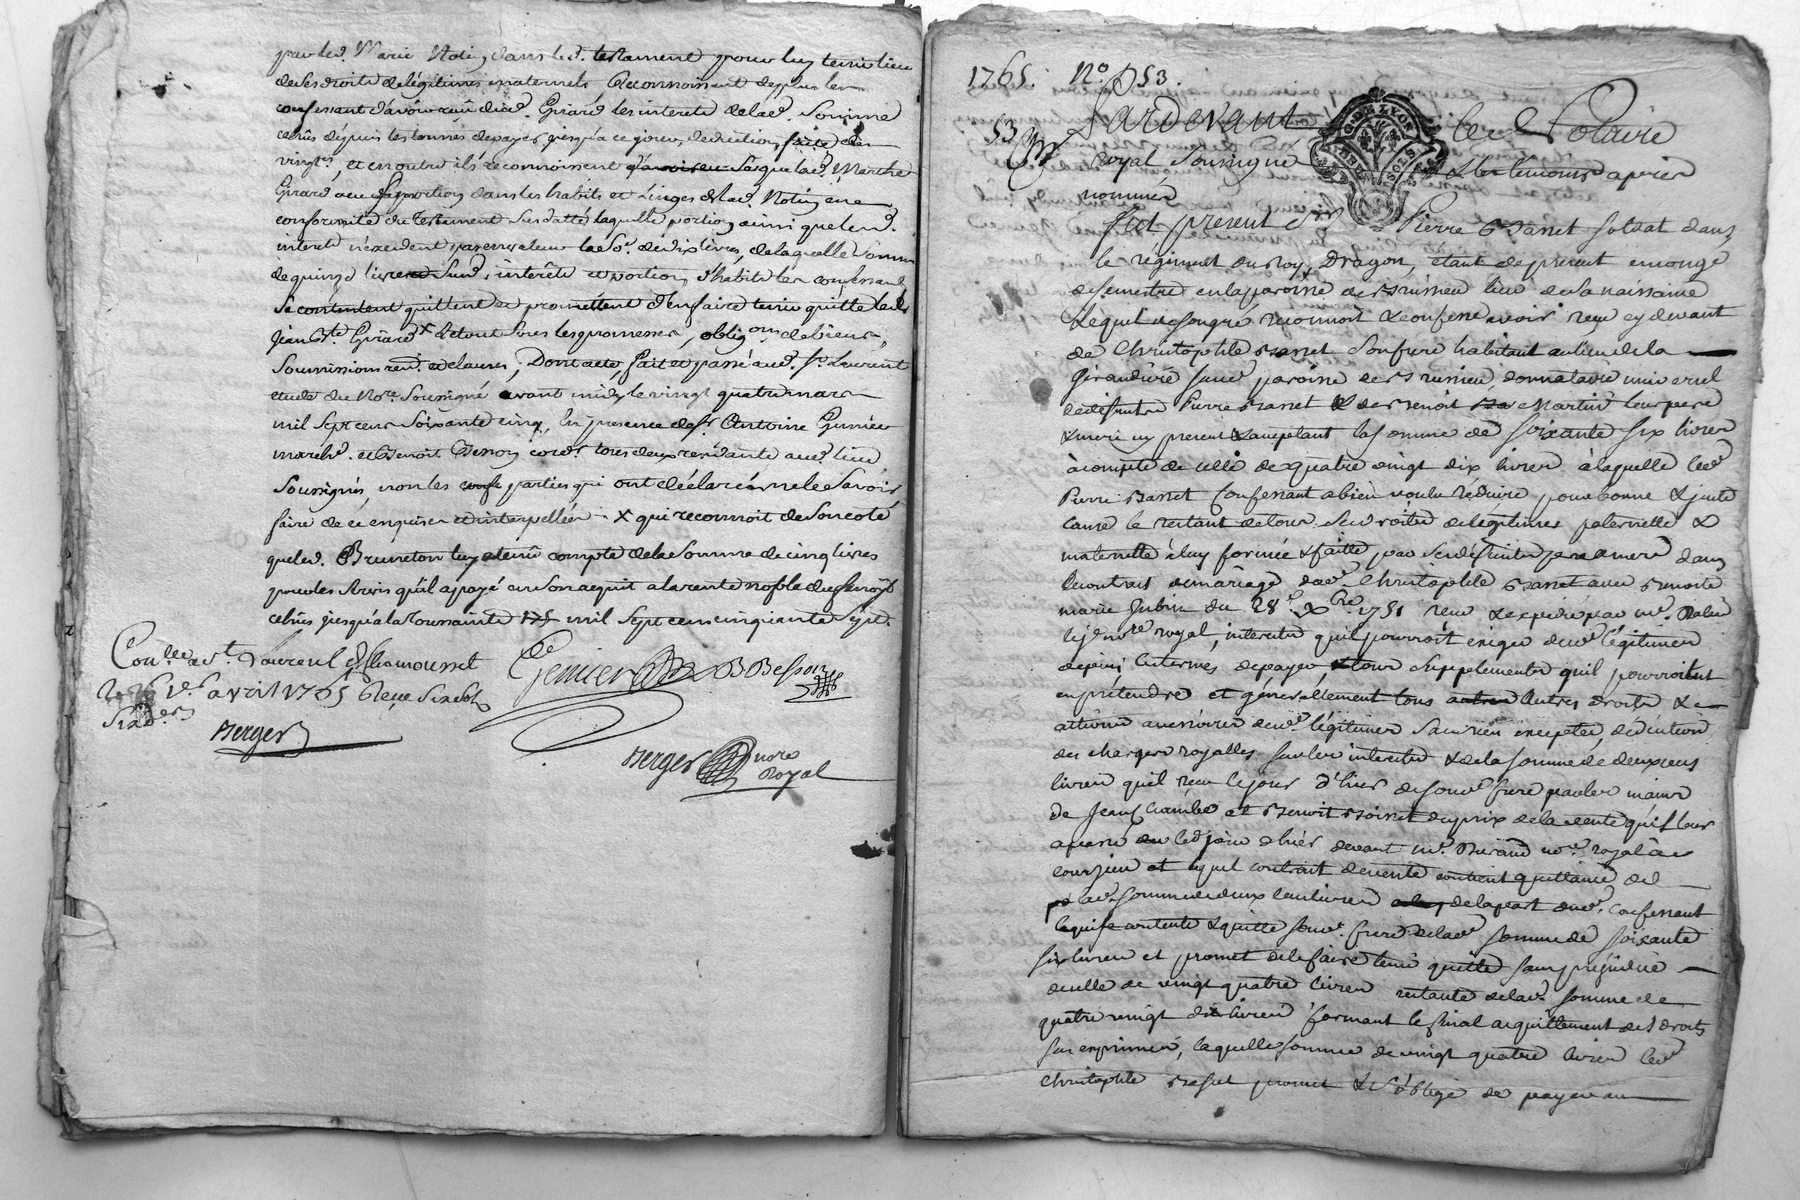 par led. Marie Notin dans led. testament pour luy tenir lieu
de ses droits de légitimes maternels, reconnoissant de plus les
confessant d'avoir reçu dud. Girard les interets de lad. Somme
échus depuis les termes de payer jusqu'à ce jour, deduction faite des
vingt., et en outre ils reconnoissent que lad. Marthe
Girard a eu sa portion dans les habits et Linges de lad. Notin en
conformité du testament Susdatté laquelle portion ainsi que led.
interets n'excedent pas en valeur la Se. de dix livres, de laquelle Somme
de quinze livres Susd. interêts et portion d'habits les confessants
se contentent quittent et promettent d'en faire tenir quitte led.
Jean Bte. Girard x Letout Sous les promesses, oblig.ons de biens,
Soumissions ren. et clauses, Dont acte, fait et passé aud. St. Laurent
etude du Nore. Soussigné avant midy le vingt quatre mars
mil Sept cens Soixante cinq, En presence de Sr. Antoine Grenier
march. et Benoit Besson cord. tous deux residants aud. lieu
Soussignés, non les parties qui ont déclaré ne le Savoir
faire de ce enquises et interpellées x qui reconnoit de Son coté
que led. Bruneton luy a tenû compte de la Somme de cinq livres
pour les Servis qu'il a payé en Son acquit a la rente noble de
echûs jusqu'à la Toussaints mil Sept cens cinquante Sept.
Con.lée a St. Laurent de Chamousset
le avril 1765 Reçu Six Sols
Six d.ers
Berger
Grenier B Besson
Berger nore
Royal
1765. No. 53.
53 Pardevant le Notaire
G. DE LYON
SOLS
royal Soussigné & les temoins aprés
nommés
fut present Sr. Pierre Basset soldat dans
le régiment du Roy, Dragon, étant de present en congé
de semestre en la paroisse de Brussieu lieu de sa naissance
Lequel de son gré reconnoit & confesse avoir reçu cy devant
de Christophle Basset son frere habitant au lieu de la
Giraudière susd. paroisse de Brussieu, donnataire universel
de défunts Pierre Basset & de Benoit Martin leurs pere
& mere cy present & acceptant la somme de soixante six livres
à compte de celle de quatre vingt dix livres à laquelle led.
Pierre Basset Confessant a bien voulu réduire pour bonne & juste
cause le restant de tous ses droits de légitimes paternelle &
maternelle à luy formée & faitte par ses défunts pere & mere dans
le contrat de mariage dud. Christophle Basset avec Benoite
marie Jubin du 28e. Xbre 1751 reçu & expedié par me.
nore royal, interets qu'il pourroit exiger desd. légitimes
depuis les termes de payer & tous supplements qu'il pourroient
en prétendre et généralement tous autres droits &
actions accessoires desd. légitimes sans rien excepter, déduction
des charges royalles sur les interets & de la somme de deux cens
livres qu'il reçu le jour d'hier de sond. frere par les mains
de Jean Chambe et Benoit Boinet du prix de la vente qu'il leur
a passé led jour d'hier devant me. Durand nore. royal à
courzieu et auquel contrat de vente contient quittance de
lad. somme deux cens livres de la part dud. Confessant
lequel se contente & quitte sond. frere de lad. somme de soixante
six livres et promet de le faire tenir quitte sans préjudice
de celle de vingt quatre livres restante de lad. somme de
quatre vingt dix livres formant le final acquittement des droits
sus exprimés, laquelle somme de vingt quatre livres led.
Christophle Basset promet & s'oblige de payer au